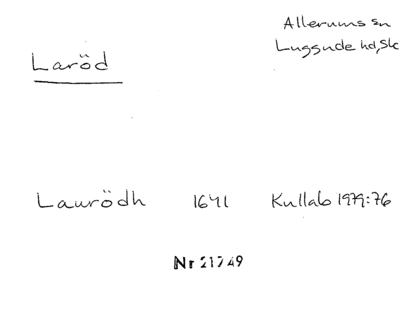 Laröd
Allerums sn
Luggude hd, Sk
Laurödh 1641 Kullab 1979:76
Nr 21249